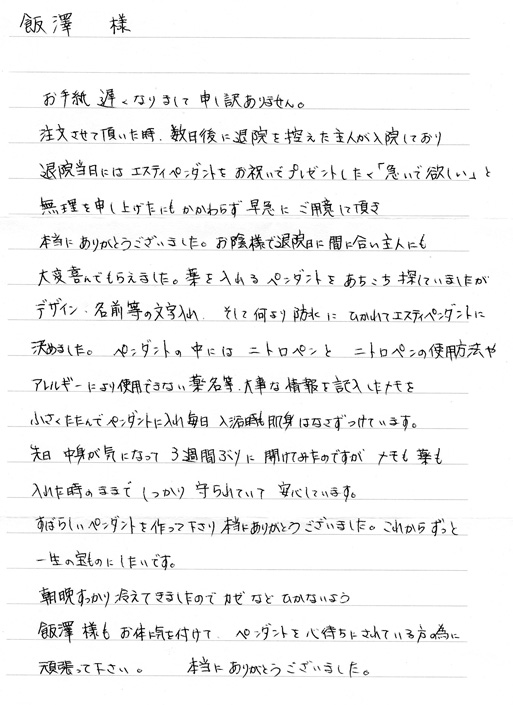 飯澤 様
お手紙 遅くなりまして 申し訳ありません。
注文させて頂いた時、数日後に退院を控えた主人が入院しており
退院当日には エスティペンダントを お祝いで プレゼントしたく「急いで欲しい」と
無理を申し上げたにもかかわらず 早急に ご用意して頂き
本当に ありがとうございました。お陰様で退院日に間に合い主人にも
大変喜んでもらえました。薬を入れる ペンダントを あちこち 探していましたが
デザイン・名前等の文字入れ、そして何より 防水に ひかれて エスティペンダントに
決めました。 ペンダントの中には ニトロペンと ニトロペンの使用方法や
アレルギーにより使用できない薬名等、大事な情報を記入したメモを
小さくたたんで ペンダントに入れ毎日 入浴時も肌身はなさずつけています。
先日 中身が気になって 3週間ぶりに 開けてみたのですが メモも 薬も
入れた時のままで しっかり 守られていて 安心しています。
すばらしいペンダントを作って下さり 本当にありがとうございました。これからずっと
一生の宝ものにしたいです。
朝晩すっかり冷えてきましたので カゼなど ひかないよう
飯澤様も お体に気を付けて、ペンダントを 心待ちにされている方の為に
頑張って下さい。 本当に ありがとうございました。